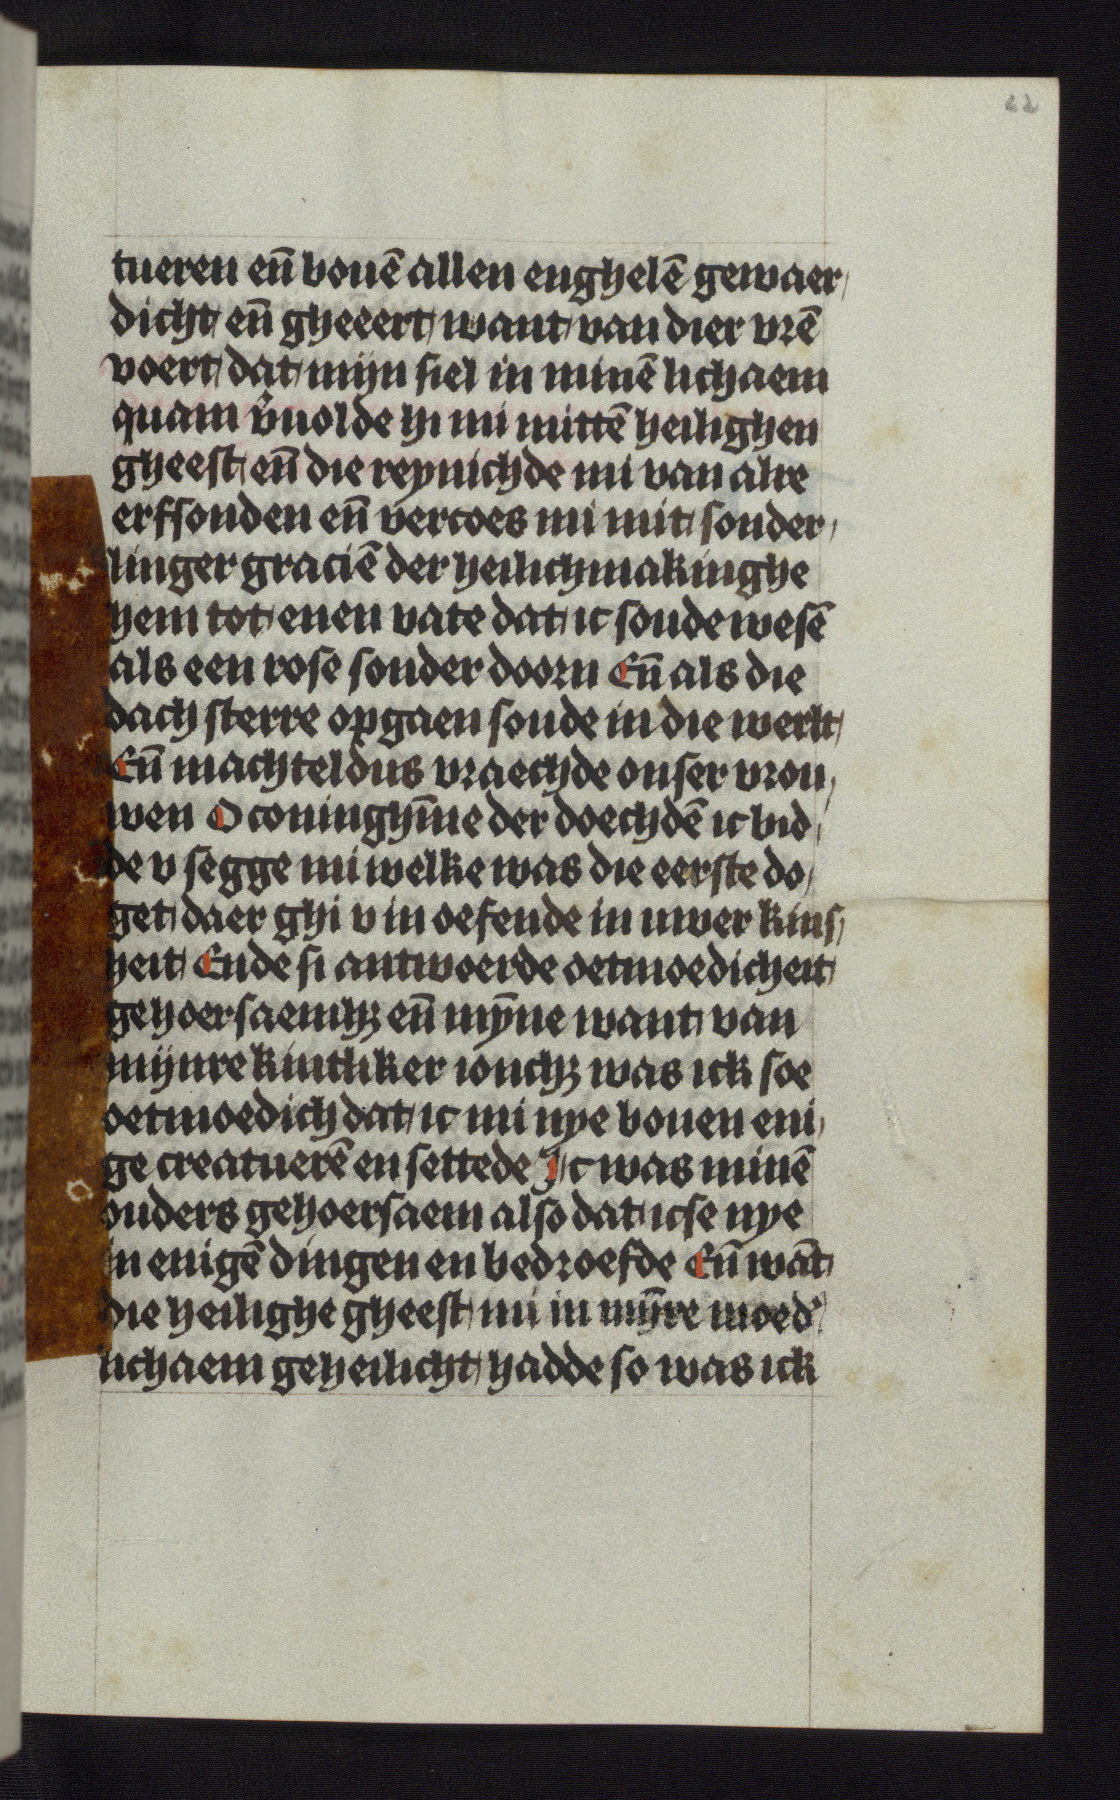 22
tueren en̄ bouē allen enghelē gewaer
dicht en̄ gheeert want van dier vrē
voert dat mijn siel in minē lichaem
quam v̄uolde hi mi mittē heilighen
gheest en̄ die reynichde mi van alre
erfsonden en̄ vercoes mi mit sonder
linger graciē der heilichmakinghe
hem tot enen vate dat ic soude wesē
als een rose sonder doorn En̄ als die
dach sterre opgaen soude in die werlt
En̄ machteldus vraechde onser vrou
wen O coninghīne der doechdē ic bid
de v segge mi welke was die eerste do
get daer ghi v in oefende in uwer kins
heit Ende si antwoerde oetmoedicheit
gehoersaemhꝫ en̄ mȳne want van
mijnre kintliker ionchꝫ was ick soe
oetmoedich dat ic mi nye bouen eni
ge creatuerē en settede Ic was minē
ouders gehoersaem also dat icse nye
in enigē dingen en bedroefde En̄ wāt
die heilighe gheest mi in mȳre moed'
lichaem geheilicht hadde so was ick